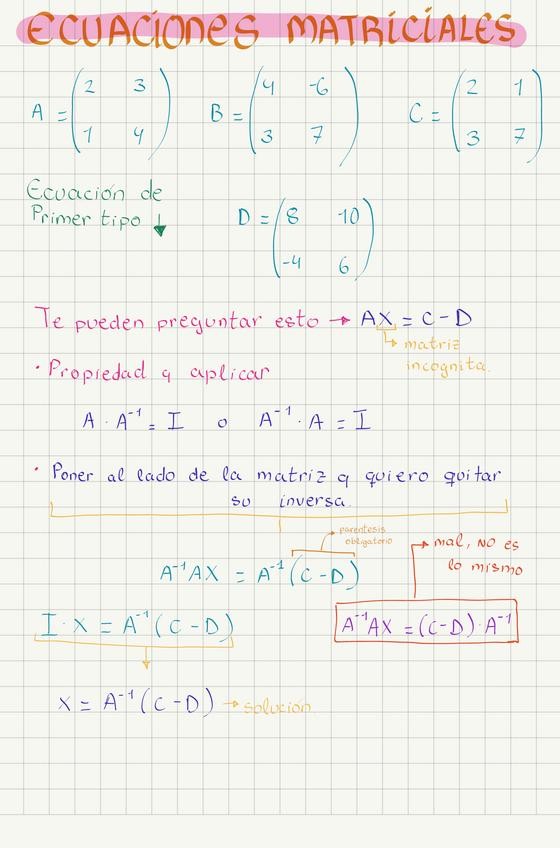 ECUACIONES MATRICIALES
A = (2 3
1 4)
B = (4 -6
3 7)
C = (2 1
3 7)
Ecuación de
Primer tipo ↓
D = (8 -10
-4 6)
Te pueden preguntar esto → AX = C - D
→ matriz
incognita.
· Propiedad q aplicar
A · A⁻¹ = I o A⁻¹ · A = I
· Poner al lado de la matriz q quiero quitar
su inversa.
→ paréntesis
obligatorio
→ mal, NO es
lo mismo
A⁻¹AX = A⁻¹(C - D)
I · X = A⁻¹(C - D)
A⁻¹AX = (C-D) · A⁻¹
X = A⁻¹(C - D) → solución